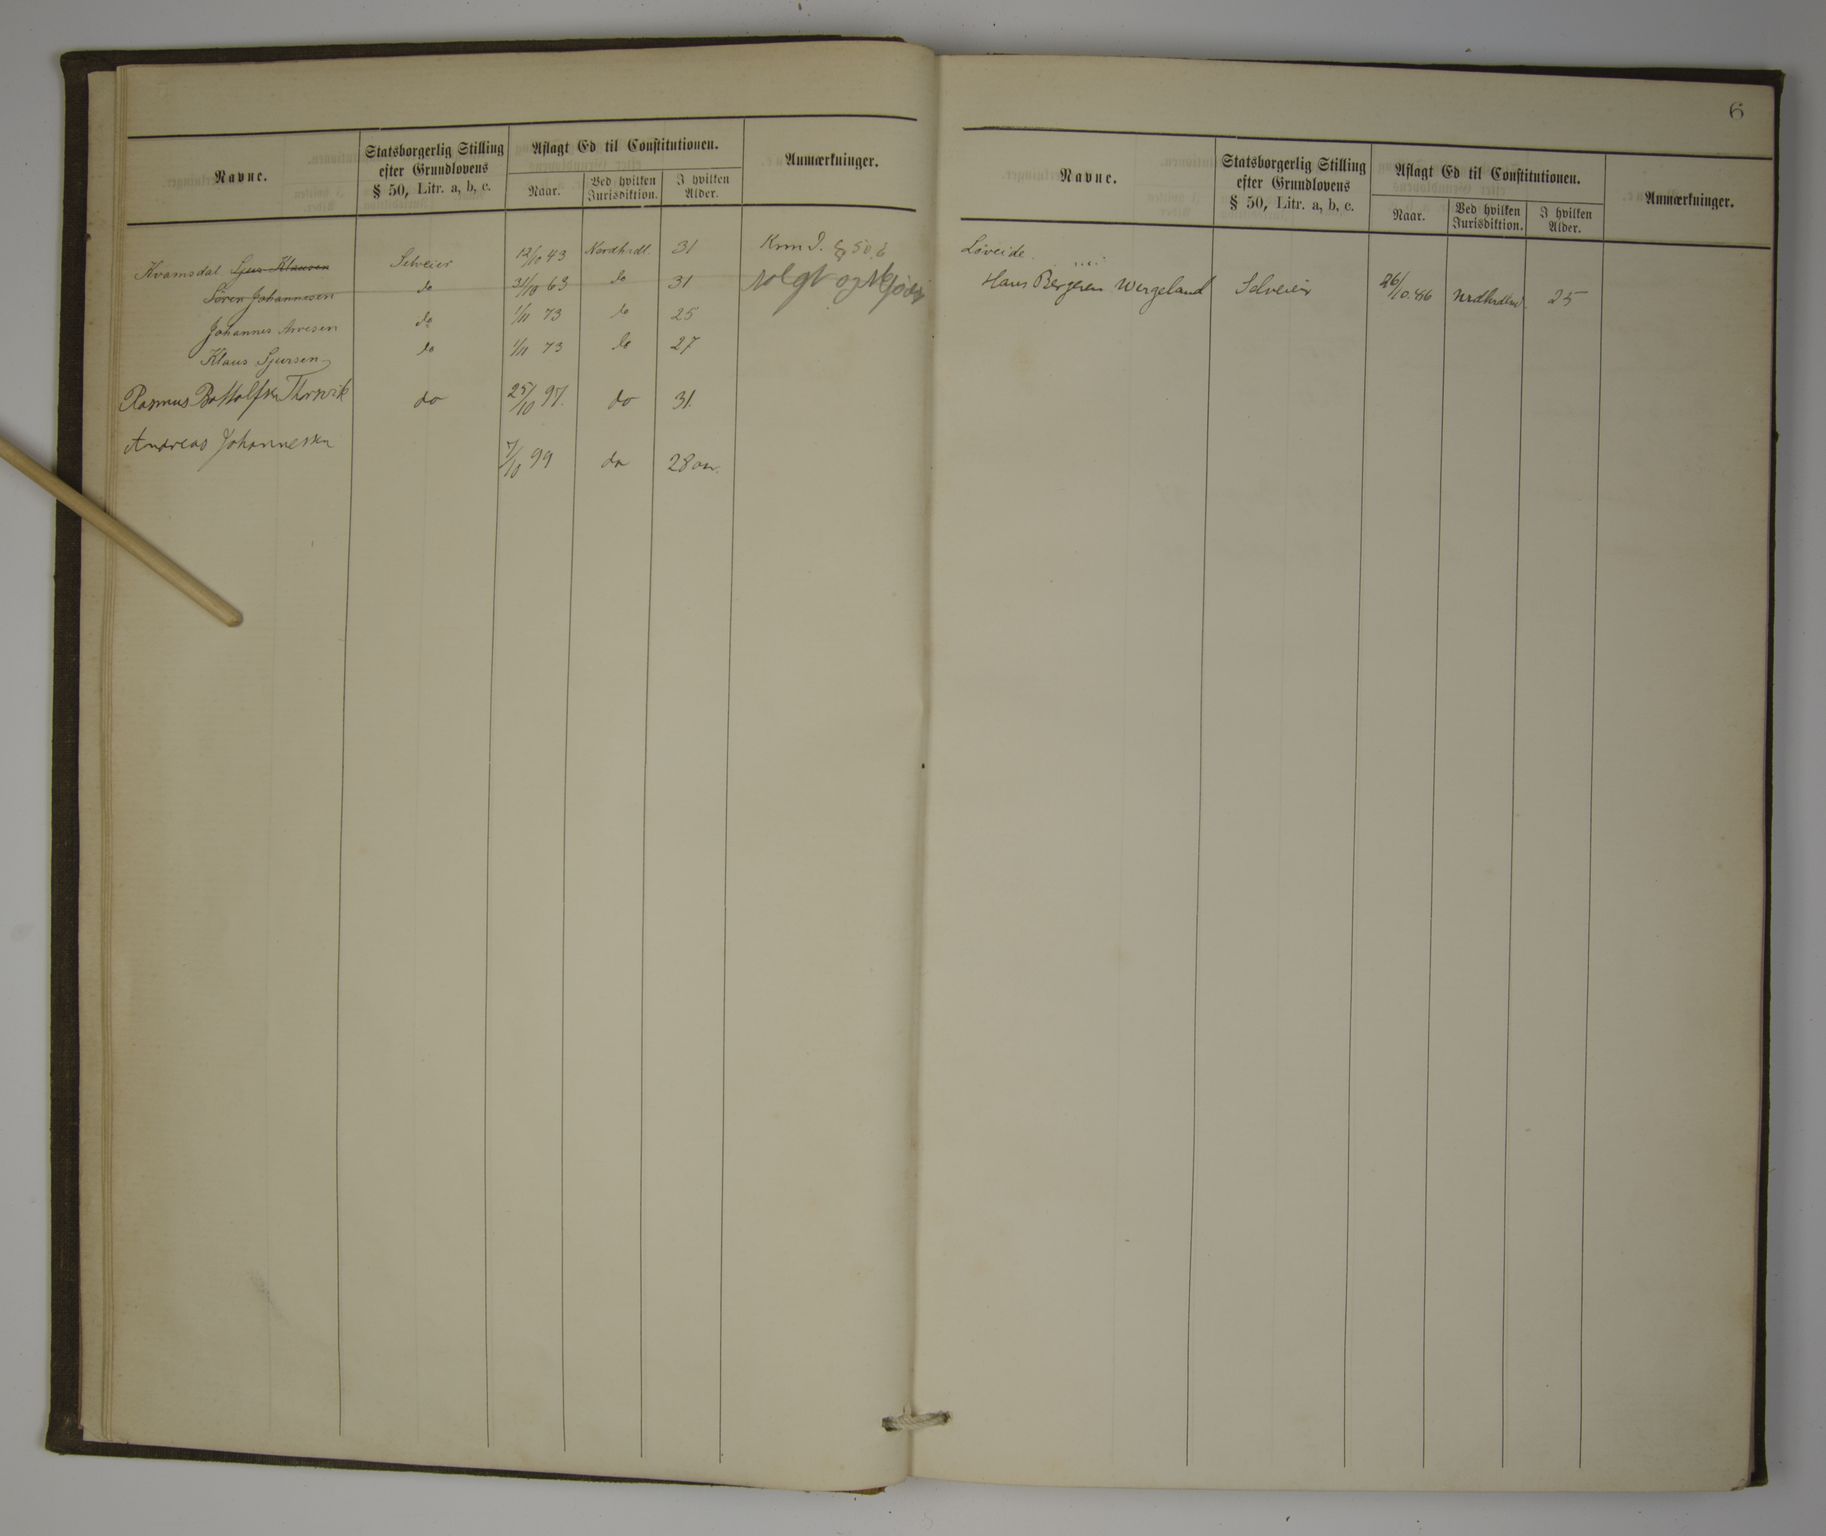 Navne.
Statsborgerlig Stilling
efter Grundlovens
§ 50, Litr. a, b, c.
Aflagt Ed til Constitutionen.
Naar.
Ved hvilken
Jurisdiktion.
I hvilken
Alder.
Anmærkninger.
Kvamsdal Sjur Klausen Selveier 12/10 43 Nordhrdl. 31 § 50.
Søren Johannesen do 31/10 63 do 31
Johannes do 1/11 73 do 25
Klaus Sjursen do 1/11 73 do 27
Rasmus Thorsvik do 25/10 97. do 31.
Andreas Johannessen 7/10 99 do 28
6
Navne.
Statsborgerlig Stilling
efter Grundlovens
§ 50, Litr. a, b, c.
Aflagt Ed til Constitutionen.
Naar.
Ved hvilken
Jurisdiktion.
I hvilken
Alder.
Anmærkninger.
Løveide.
Hans Wergeland Selveier 26/10.86 25